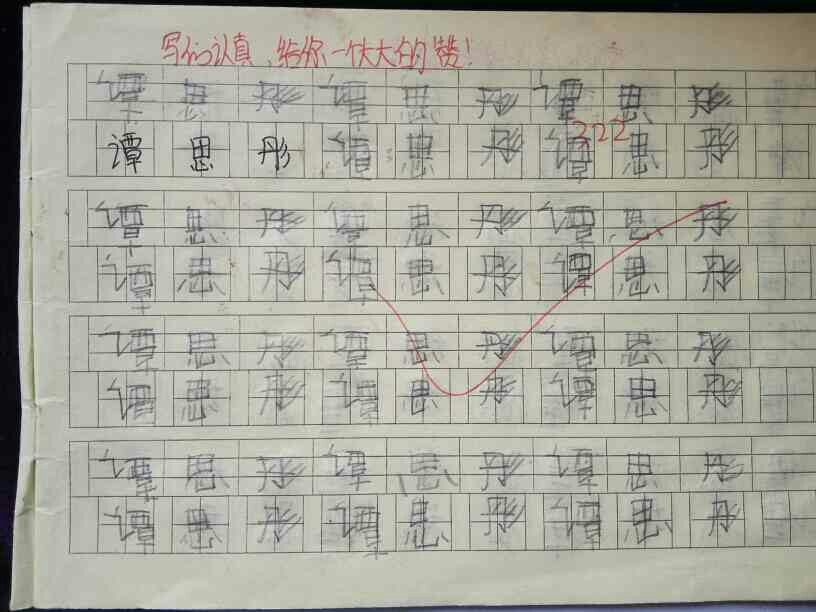 写的认真,给你一个大大的赞!
谭思彤谭思彤谭思彤
谭思彤谭思彤谭思彤
222
谭思彤谭思彤谭思彤
谭思彤谭思彤谭思彤
谭思彤谭思彤谭思彤
谭思彤谭思彤谭思彤
谭思彤谭思彤谭思彤
谭思彤谭思彤谭思彤